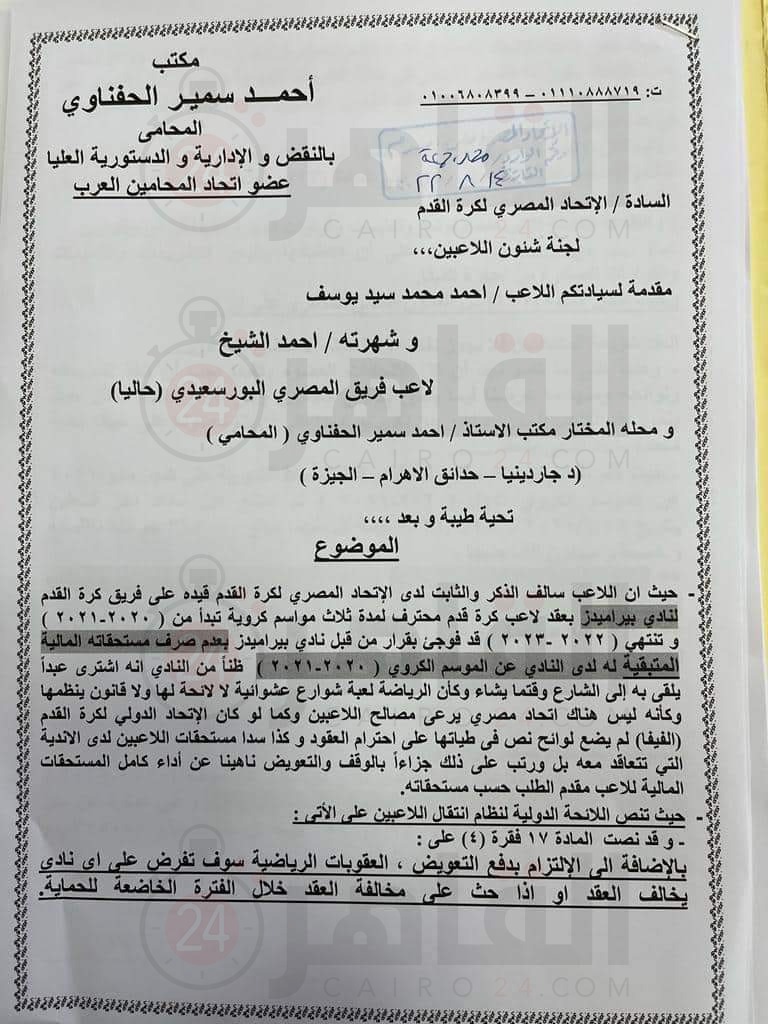 مكتب
أحمـــد سمير الحفناوي
المحامى
بالنقض و الإدارية و الدستورية العليا
عضو اتحاد المحامين العرب
ت: ٠١١١٠٨٨٨٧١٩ – ٠١٠٠٦٨٠٨٣٩٩
السادة / الإتحاد المصري لكرة القدم
لجنة شئون اللاعبين،،،
مقدمة لسيادتكم اللاعب / احمد محمد سيد يوسف
و شهرته / احمد الشيخ
لاعب فريق المصري البورسعيدي (حاليا)
و محله المختار مكتب الاستاذ / احمد سمير الحفناوي ( المحامي )
(د جاردينيا – حدائق الاهرام – الجيزة )
تحية طيبة و بعد ،،،،
الموضوع
- حيث ان اللاعب سالف الذكر والثابت لدى الإتحاد المصري لكرة القدم قيده على فريق كرة القدم
لنادي بيراميدز بعقد لاعب كرة قدم محترف لمدة ثلاث مواسم كروية تبدأ من ( ٢٠٢٠-٢٠٢١ )
و تنتهي ( ٢٠٢٢ -٢٠٢٣ ) قد فوجئ بقرار من قبل نادي بيراميدز بعدم صرف مستحقاته المالية
المتبقية له لدى النادي عن الموسم الكروي ( ٢٠٢٠-٢٠٢١ ) ظناً من النادي انه اشترى عبداً
يلقى به إلى الشارع وقتما يشاء وكأن الرياضة لعبة شوارع عشوائية لا لائحة لها ولا قانون ينظمها
وكأنه ليس هناك اتحاد مصري يرعى مصالح اللاعبين وكما لو كان الإتحاد الدولي لكرة القدم
(الفيفا) لم يضع لوائح نص فى طياتها على احترام العقود و كذا سدا مستحقات اللاعبين لدى الاندية
التي تتعاقد معه بل ورتب على ذلك جزاءاً بالوقف والتعويض ناهينا عن أداء كامل المستحقات
المالية للاعب مقدم الطلب حسب مستحقاته.
- حيث تنص اللائحة الدولية لنظام انتقال اللاعبين على الأتى :
- و قد نصت المادة ١٧ فقرة (٤) على :
بالإضافة الى الإلتزام بدفع التعويض ، العقوبات الرياضية سوف تفرض على اى نادي
يخالف العقد او اذا حث على مخالفة العقد خلال الفترة الخاضعة للحماية.
القاهرة 24
CAIRO 24.COM